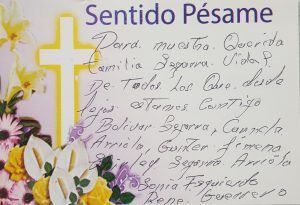 Sentido Pésame
Para nuestra Querida
Familia Segarra Vidal
De Todos Los Que desde
lejos estamos Contigo
Bolivar Segarra, Carmela
Arriola, Jimena
Segarra Arriola
Sonia Izquierdo
Rene Guerrero